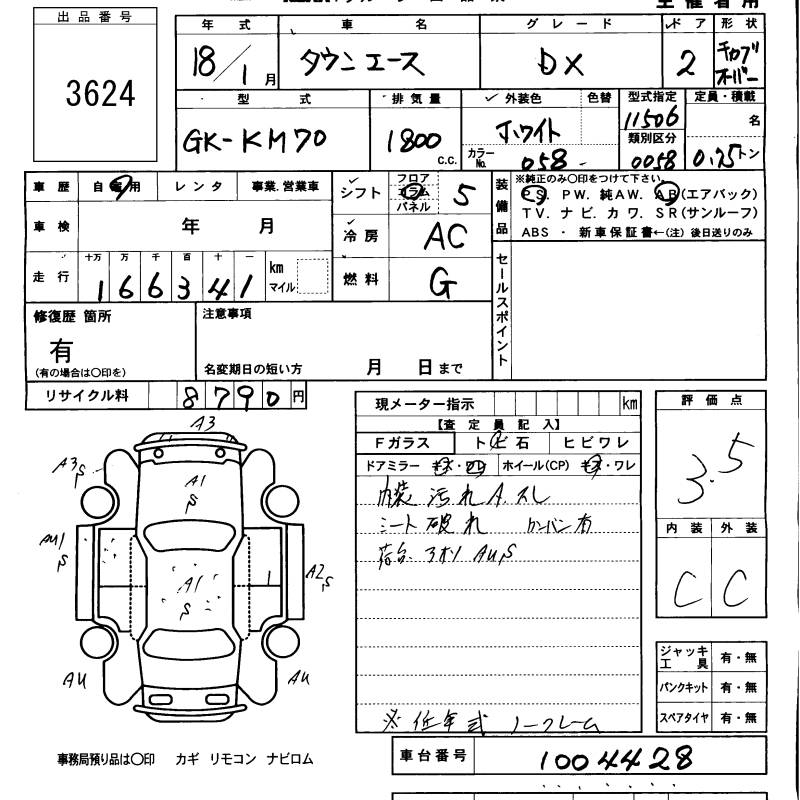 主催者用
出品番号
3624
年式 車名 グレード ドア 形状
18/1月 タウンエース DX 2
型式 排気量 外装色 色替 型式指定 定員・積載
GK-KM70 1800 c.c. ホワイト 11506 名
カラーNo. 058 類別区分 0058 0.75トン
車歴 自家用 レンタ 事業.営業車
車検 年 月
走行 十万 万 千 百 十 一 km マイル
166341
シフト フロア コラム パネル 5
冷房 AC
燃料 G
装備品
※純正のみ○印をつけて下さい。
PS. PW. 純AW. AB(エアバック)
TV. ナビ. カワ. SR(サンルーフ)
ABS ・ 新車保証書←(注)後日送りのみ
セールスポイント
修復歴 箇所
有
(有の場合は○印を)
注意事項
名変期日の短い方 月 日まで
リサイクル料 8790円
現メーター指示 km
【査定員記入】
Fガラス トビ石 ヒビワレ
ドアミラー キズ・ワレ ホイール(CP) キズ・ワレ
内装 汚れ A.スレ
シート 破れ カンバン有
荷台 AUS
※低年式 ノークレーム
評価点
3.5
内装 外装
C C
ジャッキ工具 有・無
パンクキット 有・無
スペアタイヤ 有・無
A3
A3S
A1S
AU1S
A1S
A2S
AU
AU
事務局預り品は○印 カギ リモコン ナビロム
車台番号 1004428